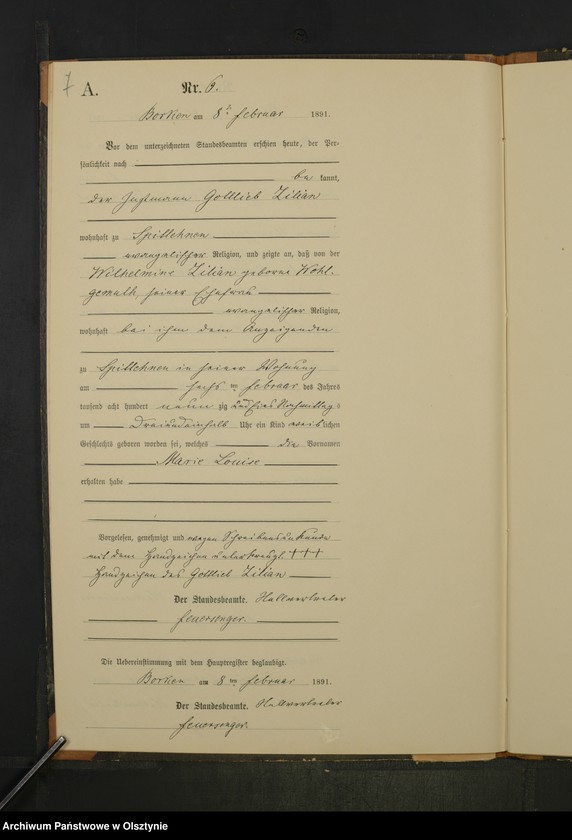 7
A.
Nr. 6.
Borken am 8ten Februar 1891.
Vor dem unterzeichneten Standesbeamten erschien heute, der Per-
sönlichkeit nach
be kannt,
der Instmann Gottlieb Zilian
wohnhaft zu Spittehnen
evangelischer Religion, und zeigte an, daß von der
Wilhelmine Zilian geborne Wohl-
gemuth, seiner Ehefrau
evangelischer Religion,
wohnhaft bei ihm dem Anzeigenden
zu Spittehnen in seiner Wohnung
am sechs ten Februar des Jahres
tausend acht hundert neun zig und eins Nachmittags
um Dreiundeinhalb Uhr ein Kind weiblichen
Geschlechts geboren worden sei, welches die Vornamen
Marie Louise
erhalten habe
Vorgelesen, genehmigt und wegen Schreibensunkunde
mit dem Handzeichen unterkreuzt. +++
Handzeichen des Gottlieb Zilian
Der Standesbeamte.
Feuersenger.
Die Uebereinstimmung mit dem Hauptregister beglaubigt.
Borken am 8 ten Februar 1891.
Der Standesbeamte.
Feuersenger.
Archiwum Państwowe w Olsztynie